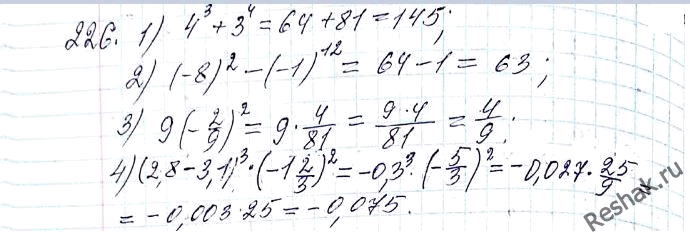 226. 1) 4³ + 3⁴ = 64 + 81 = 145;
2) (-8)² - (-1)¹² = 64 - 1 = 63;
3) 9(-2/9)² = 9 · 4/81 = 9·4/81 = 4/9;
4) (2,8 - 3,1)³ · (-1 2/3)² = -0,3³ · (-5/3)² = -0,027 · 25/9 =
= -0,003 · 25 = -0,075.
Reshak.ru